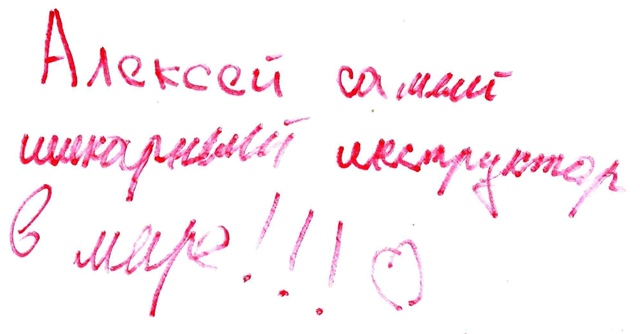 Алексей самый
шикарный инструктор
в мире!!! ♡